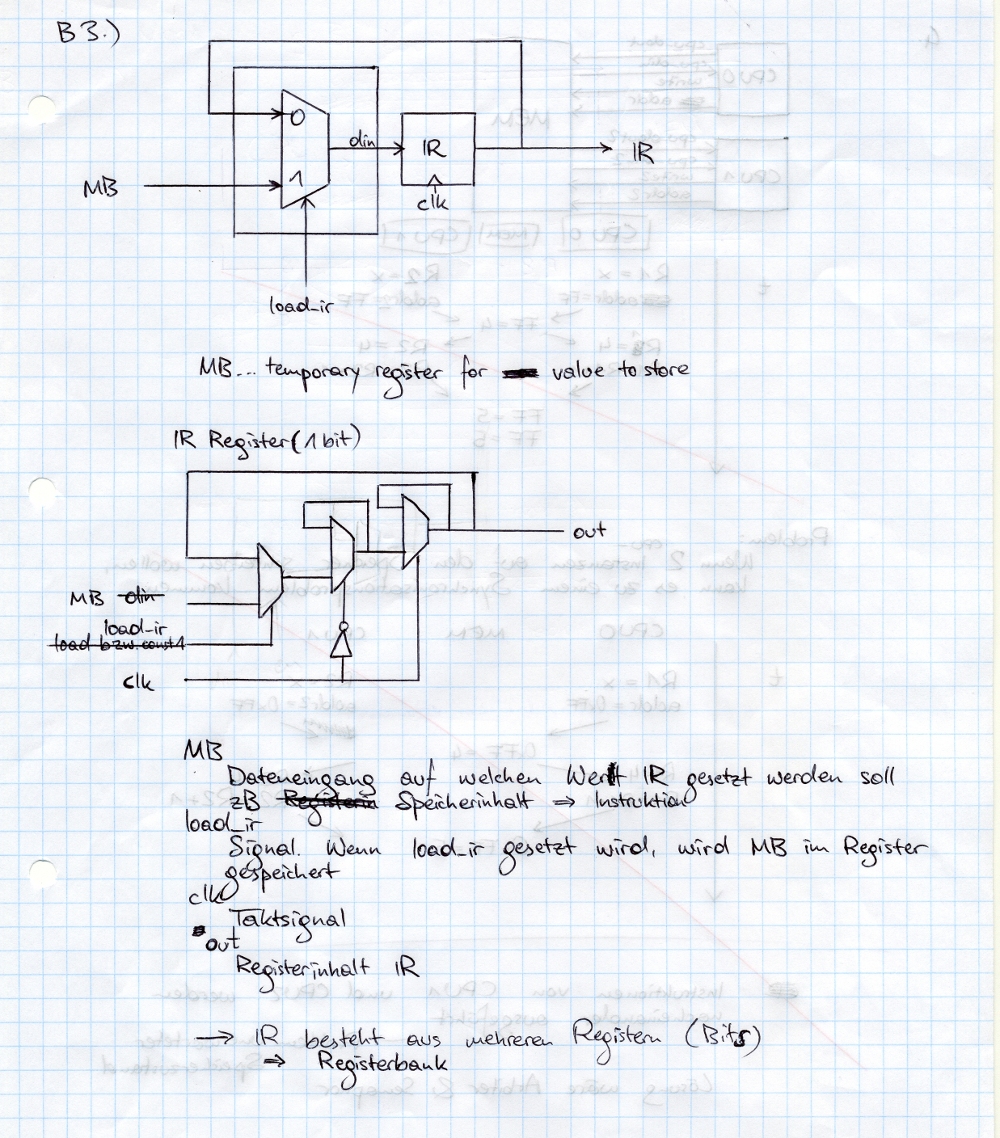 B3.)
0
din
IR
IR
MB
1
clk
load_ir
MB... temporary register for value to store
IR Register (1 bit)
out
MB din
load_ir
load bzw. const 1
clk
MB
Dateneingang auf welchen Wert IR gesetzt werden soll
zB Registerin Speicherinhalt ⇒ Instruktion
load_ir
Signal. Wenn load_ir gesetzt wird, wird MB im Register
gespeichert
clk
Taktsignal
out
Registerinhalt IR
→ IR besteht aus mehreren Registern (Bits)
⇒ Registerbank